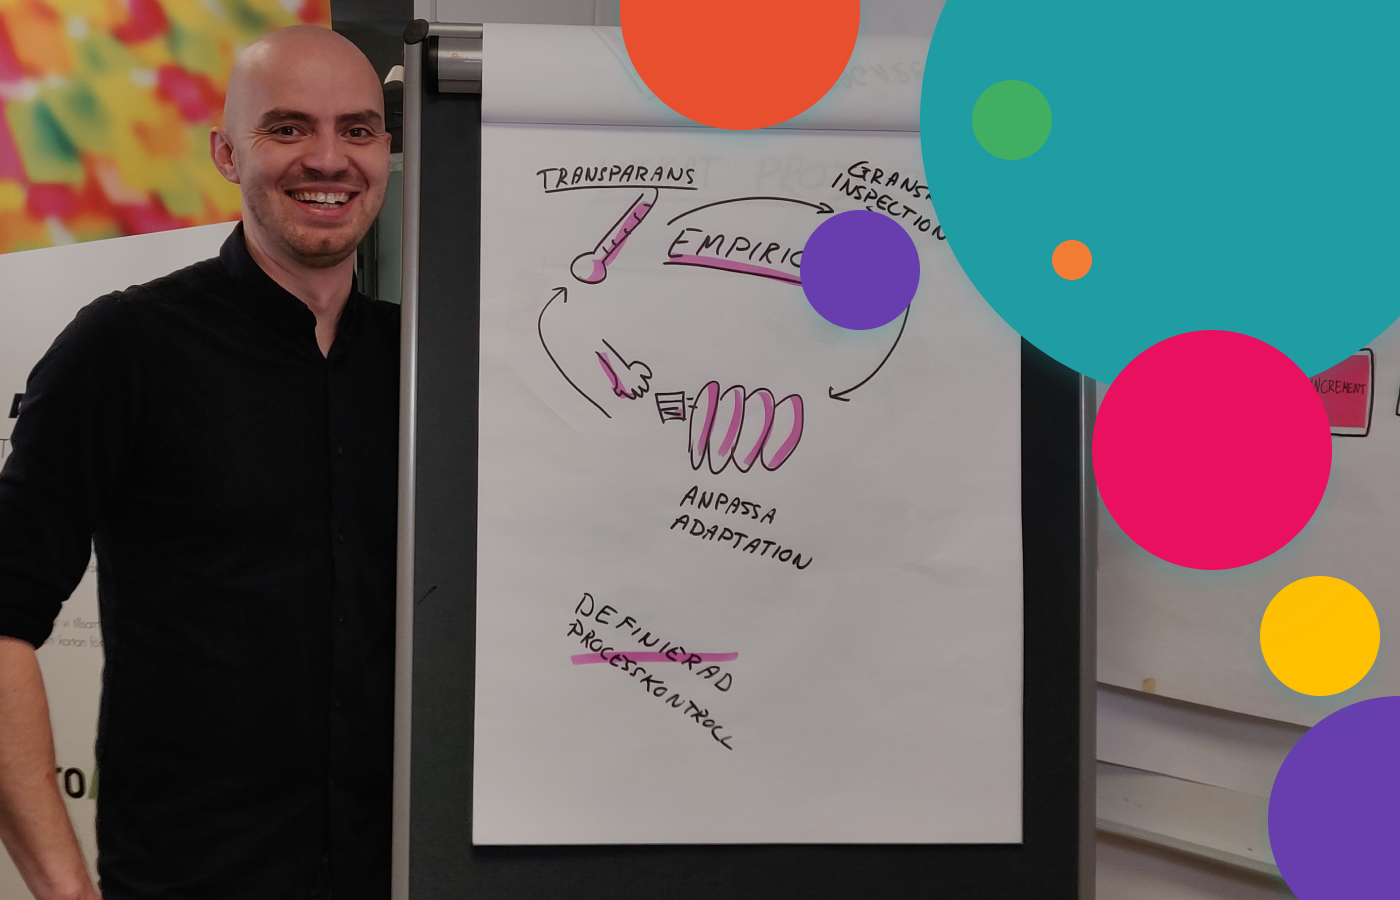 TRANSPARANS
INSPECTION
ANPASSA
ADAPTATION
DEFINIERAD
PROCESSKONTROLL
INCREMENT